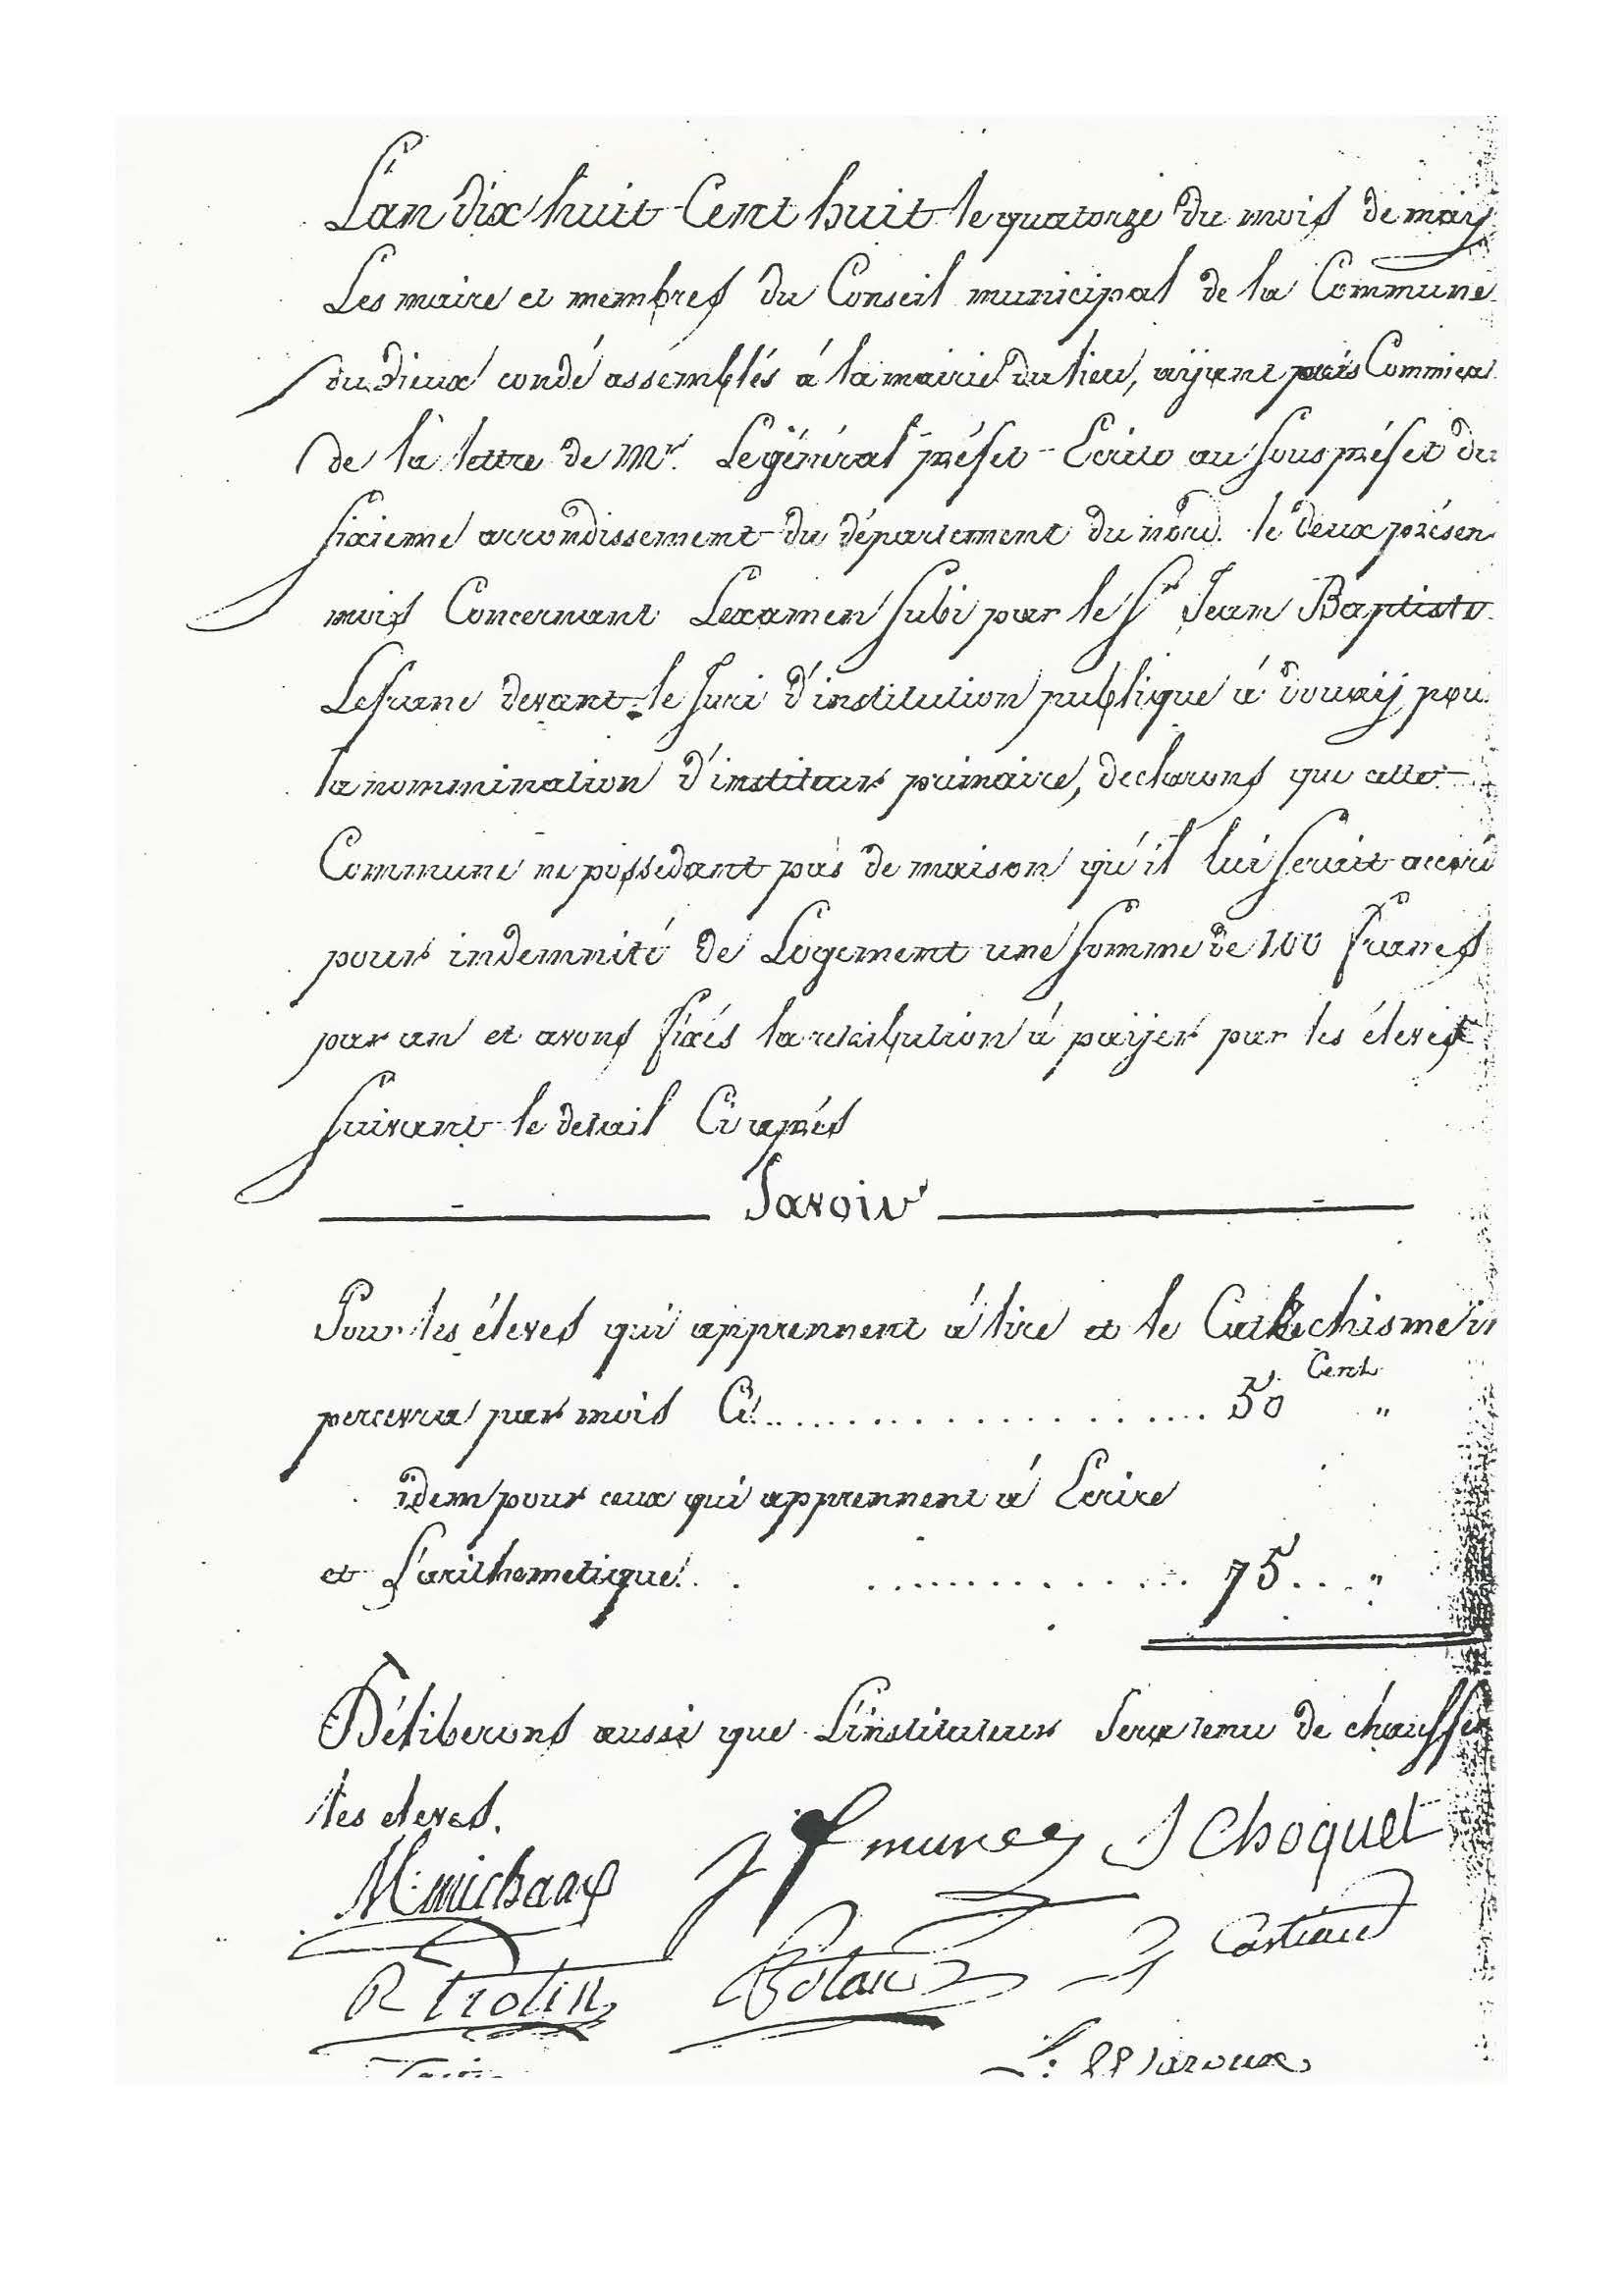 L'an dix huit Cent huit le quatorze du mois de maij
Les maire et membres du Conseil municipal de la Commune
du vieux condé assemblés á la mairie du lieu, aijant pris Commica
de la lettre de Mr. Le général préfet Ecrite au sous préfet du
sixieme arrondissement du département du nord. le deux présen
mois Concernant Lexamen subi par le Sr Jean Baptiste
Lefranc devant le juri d'institution publique á douaij pou
la nommination d'instituteur primaire, declarons que cette
Commune ne possedant pas de maison qu'il lui serait accord
pour indemnité de Logement une somme de 100 francs
par an et avons fixés la retribution á paijer par les éleves
suivant le detail Ci aprés
Savoir
Pour les éleves qui apprennent á lire et le Catechisme il
percevra par mois Ci.................... 50 Cent "
idem pour ceux qui apprennent á Ecrire
et L'arithemetique. . . ............. 75... "
Déliberons aussi que L'instituteur sera tenu de chauffer
les eleves.
M. michaux J f muncey J Choquet
R Trotin Castiau